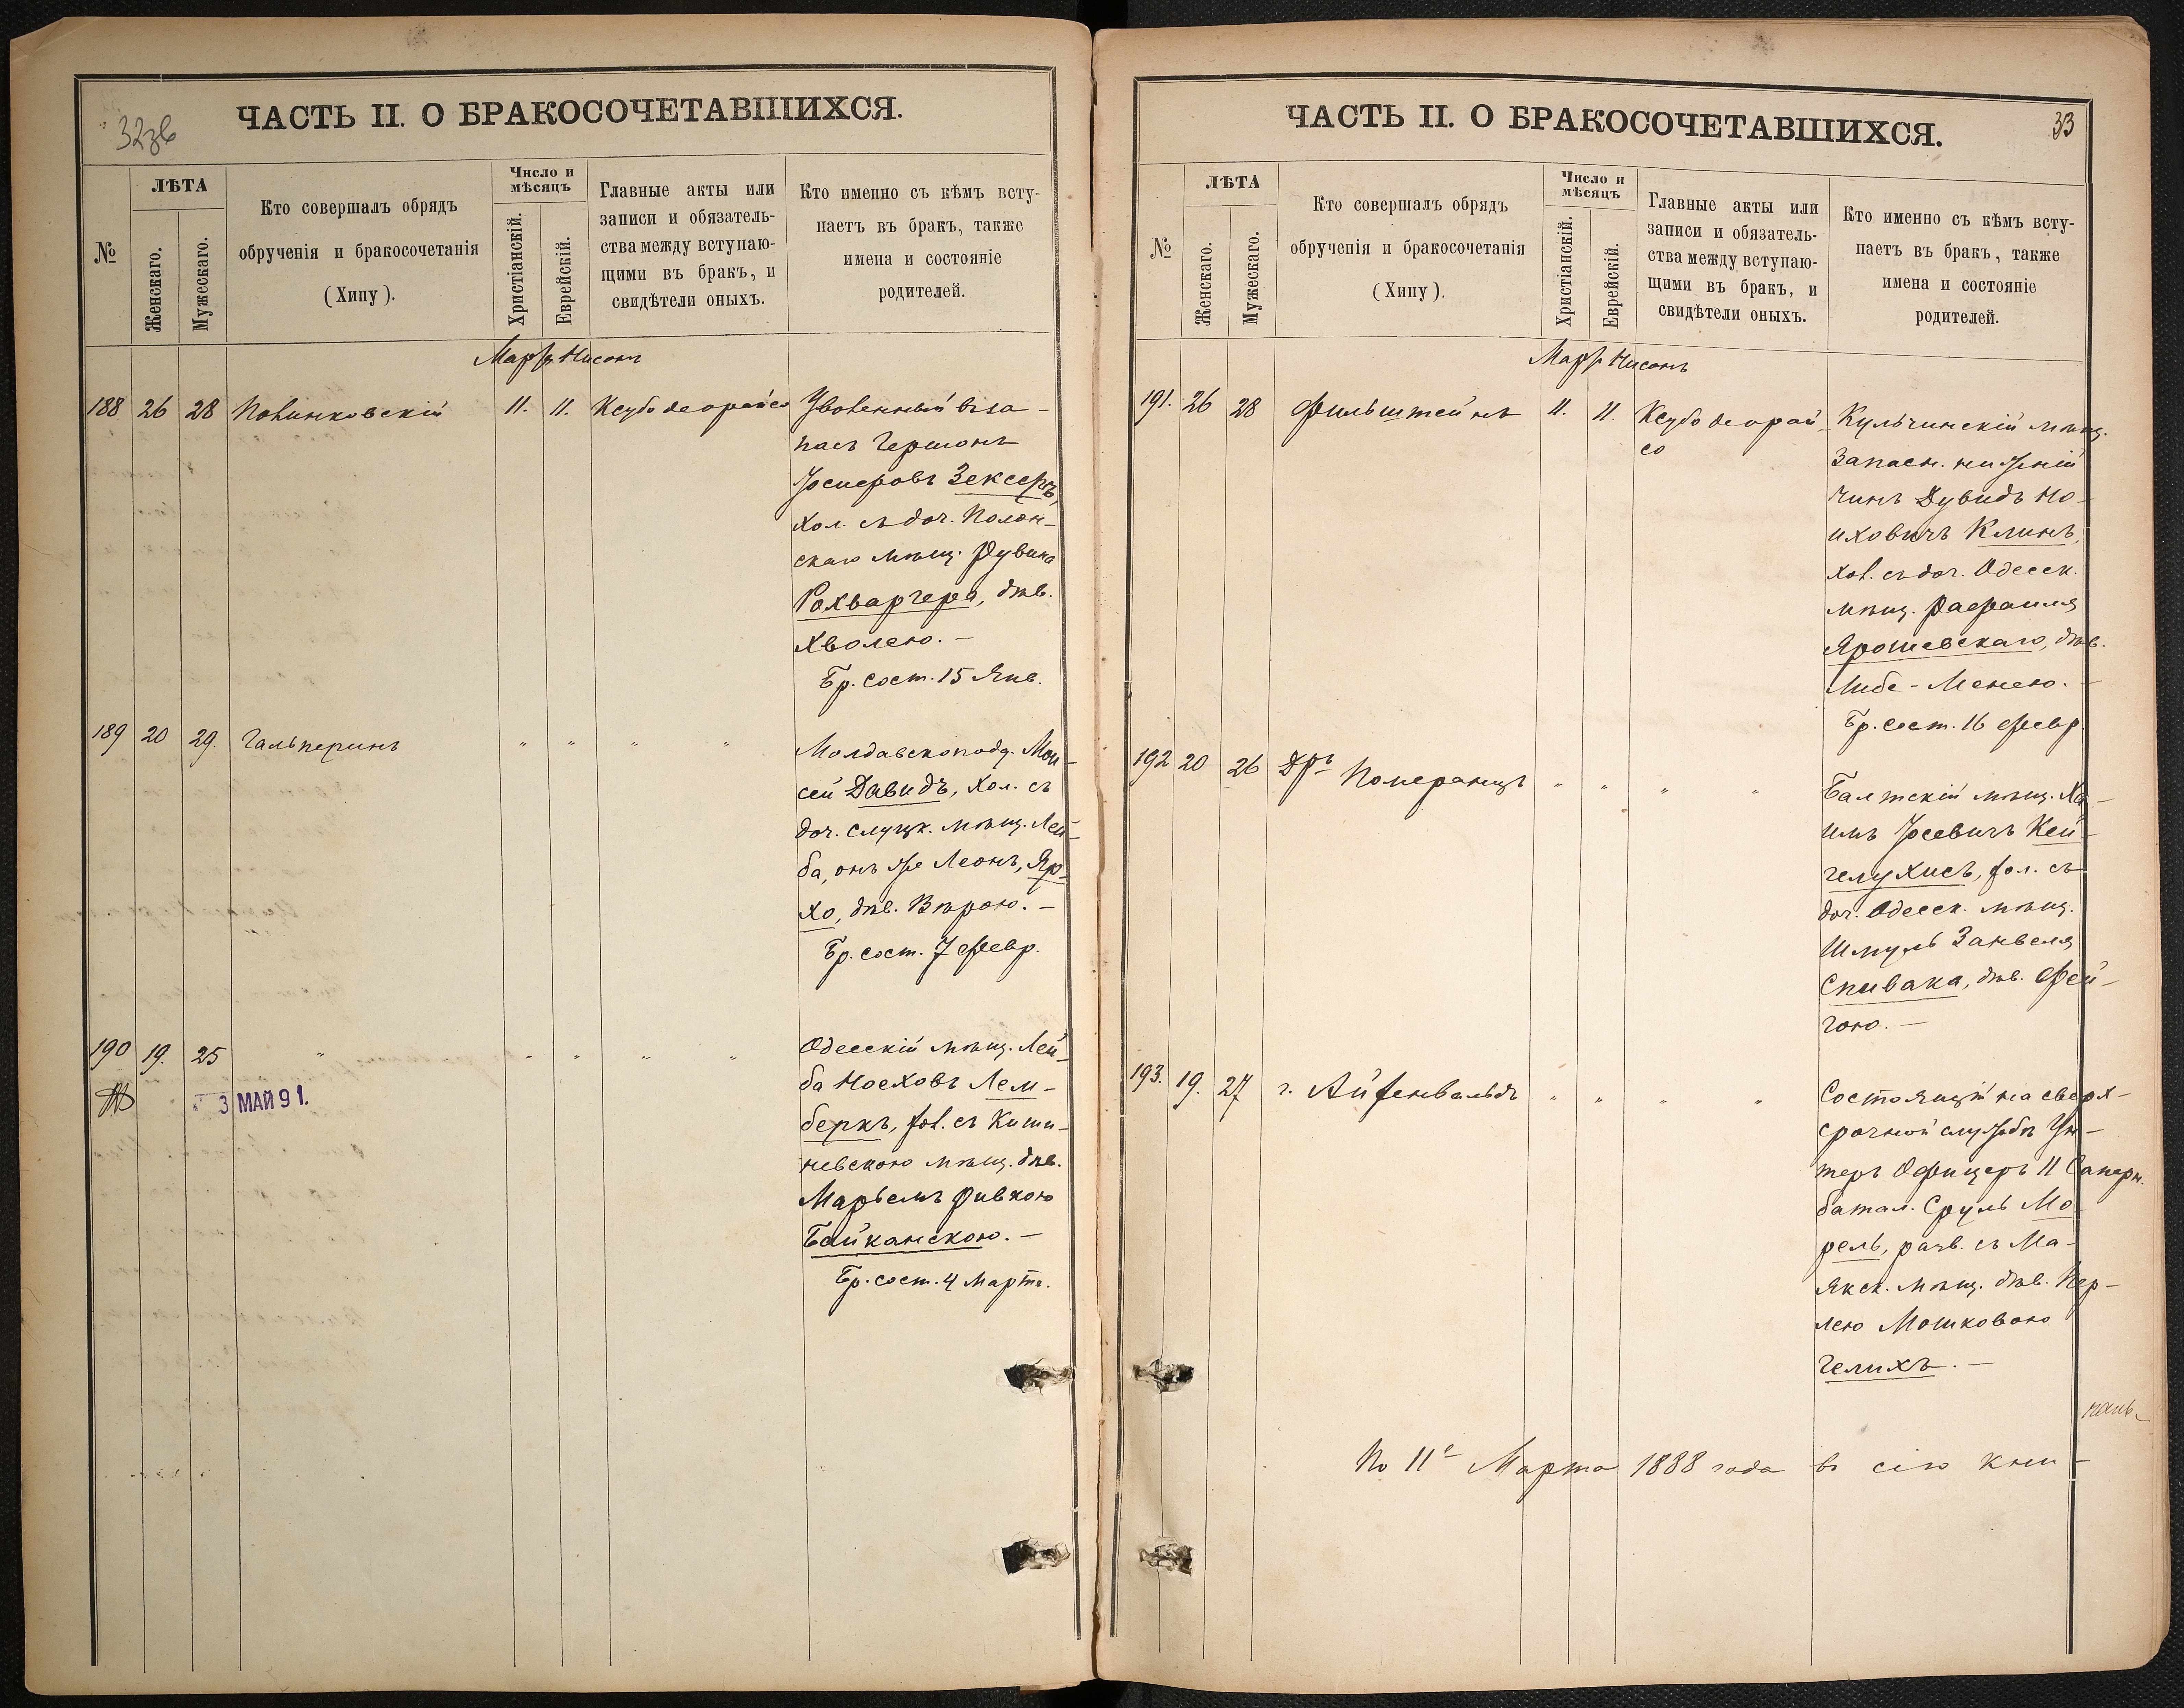 32зв
ЧАСТЬ II. О БРАКОСОЧЕТАВШИХСЯ.
№
ЛѢТА
Женскаго.
Мужескаго.
Кто совершалъ обрядъ
обрученія и бракосочетанія
(Хипу).
Число и
мѣсяцъ
Христіанскій.
Еврейскій.
Главные акты или
записи и обязатель-
ства между вступаю-
щими въ бракъ, и
свидѣтели оныхъ.
Кто именно съ кѣмъ всту-
паетъ въ бракъ, также
имена и состояніе
родителей.
Мартъ Нисонъ
188 26 28 Новинковскій 11. 11. Ксубо деорайсо Уволенный въ за-
пасъ Гершонъ
Іосифовъ Зексеръ,
хол. съ доч. Полон-
скаго мѣщ. Рувина
Рохваргера, дѣв.
Хволею. —
Бр. сост. 15 Янв.
189 20 29. Гальперинъ " " " " Молдавскоподд. Мои-
сей Давидъ, хол. съ
доч. слуцк. мѣщ. Лей-
ба, онъ же Леонъ, Яр-
хо, дѣв. Вѣрою. —
Бр. сост. 7 Февр.
190 19. 25 " " " " " Одесскій мѣщ. Лей-
ба Носховъ Лем-
беркъ, хол. съ Киши-
невскою мѣщ. дѣв.
Марьемъ Ривкою
Байканскою. —
Бр. сост. 4 Марта.
3 МАЙ 91.
33
ЧАСТЬ II. О БРАКОСОЧЕТАВШИХСЯ.
№
ЛѢТА
Женскаго.
Мужескаго.
Кто совершалъ обрядъ
обрученія и бракосочетанія
(Хипу).
Число и
мѣсяцъ
Христіанскій.
Еврейскій.
Главные акты или
записи и обязатель-
ства между вступаю-
щими въ бракъ, и
свидѣтели оныхъ.
Кто именно съ кѣмъ всту-
паетъ въ бракъ, также
имена и состояніе
родителей.
Мартъ Нисонъ
191. 26 28 Фильштейнъ 11. 11. Ксубо деорай-
со
Кульчинскій мѣщ.
Запасн. нижній
чинъ Дувидъ Но-
иховичъ Клинъ,
хол. съ доч. Одесск.
мѣщ. Рафаиля
Ярошевскаго, дѣв.
Либе-Менею. —
Бр. сост. 16 Февр.
192 20 26 Дръ Померанцъ " " " " Балтскій мѣщ. Ха-
имъ Іосевичъ Кей-
гелухисъ, хол. съ
доч. Одесск. мѣщ.
Шмуль Занвеля
Спивака, дѣв. Фей-
гою. —
193. 19. 27 г. Айзенвальдъ " " " " Состоящій на сверх-
срочной службѣ Ун-
теръ Офицеръ 11 Саперн.
батал. Сруль Мо-
рель, разв. съ Ма-
якск. мѣщ. дѣв. Пер-
лею Мошковою
Гелихъ. —
По 11е Марта 1888 года въ сію кни-